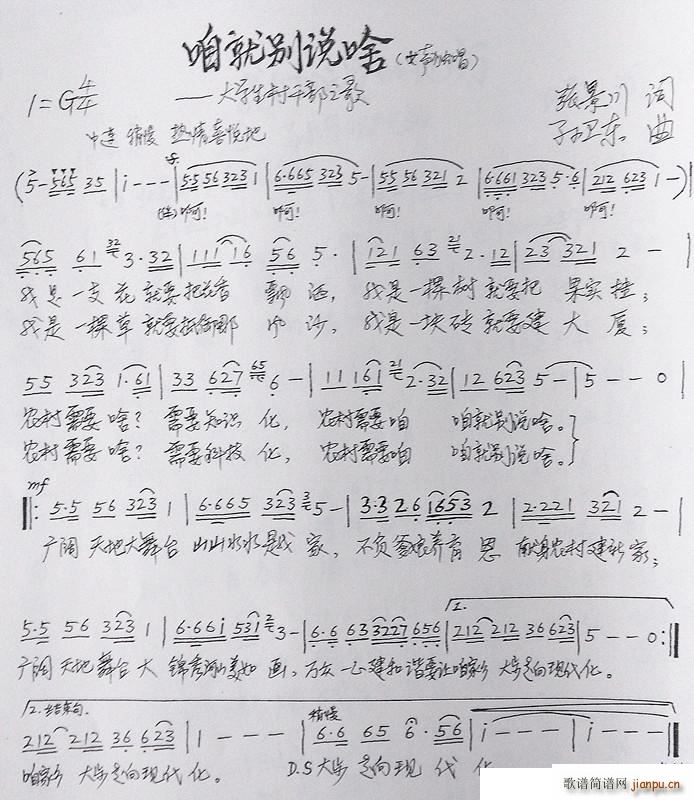 咱就别说啥(女声小合唱)
1=G4/4 ——大学生村干部之歌 张景川 词
中速 稍慢 热情喜悦地 孙卫东 曲
(5- 565 35 | i - - - | 55 56 323 1 | 6·665 323 5- | 55 56 321 2 | 6·661 323 5·6 | 212 623 1 -)
(伴)啊! 啊! 啊! 啊! 啊!
565 61 3·32 | 111 16 56 5· | 121 63 2·12 | 23 321 2 - |
我是一支花就要把花香 飘洒, 我是一棵树就要把 果实挂;
我是一棵草就要 那 沙, 我是一块砖就要建 大 厦;
55 323 1·61 | 33 627 6 - | 11 161 2·32 | 12 623 5 - | 5 - - 0 |
农村需要啥? 需要知识 化, 农村需要咱 咱就别说啥。
农村需要啥? 需要科技 化, 农村需要咱 咱就别说啥。
mf
5·5 56 323 1 | 6·665 323 5 - | 3·3 26 1653 2 | 2·221 321 2 - |
广阔 天地大舞台 山山水水是我 家, 不负爹娘养育 恩 献身农村建新家;
1.
5·5 56 323 1 | 6·66i 53i 3 - | 6·6 63 3227 656 | 212 212 36 623 | 5 - - 0 :|
广阔 天地 舞台 大 锦绣河山美如 画, 万众 一心建和谐要让咱家乡 大步走向现代化。
2.结束句. 稍慢
212 212 36 623 | 1 - - - | 6·6 65 6· 56 | i - - - | i - - - ‖
咱家乡 大步走向现代化。 D.S大步 走向现 代 化
歌谱简谱网
jianpu.cn